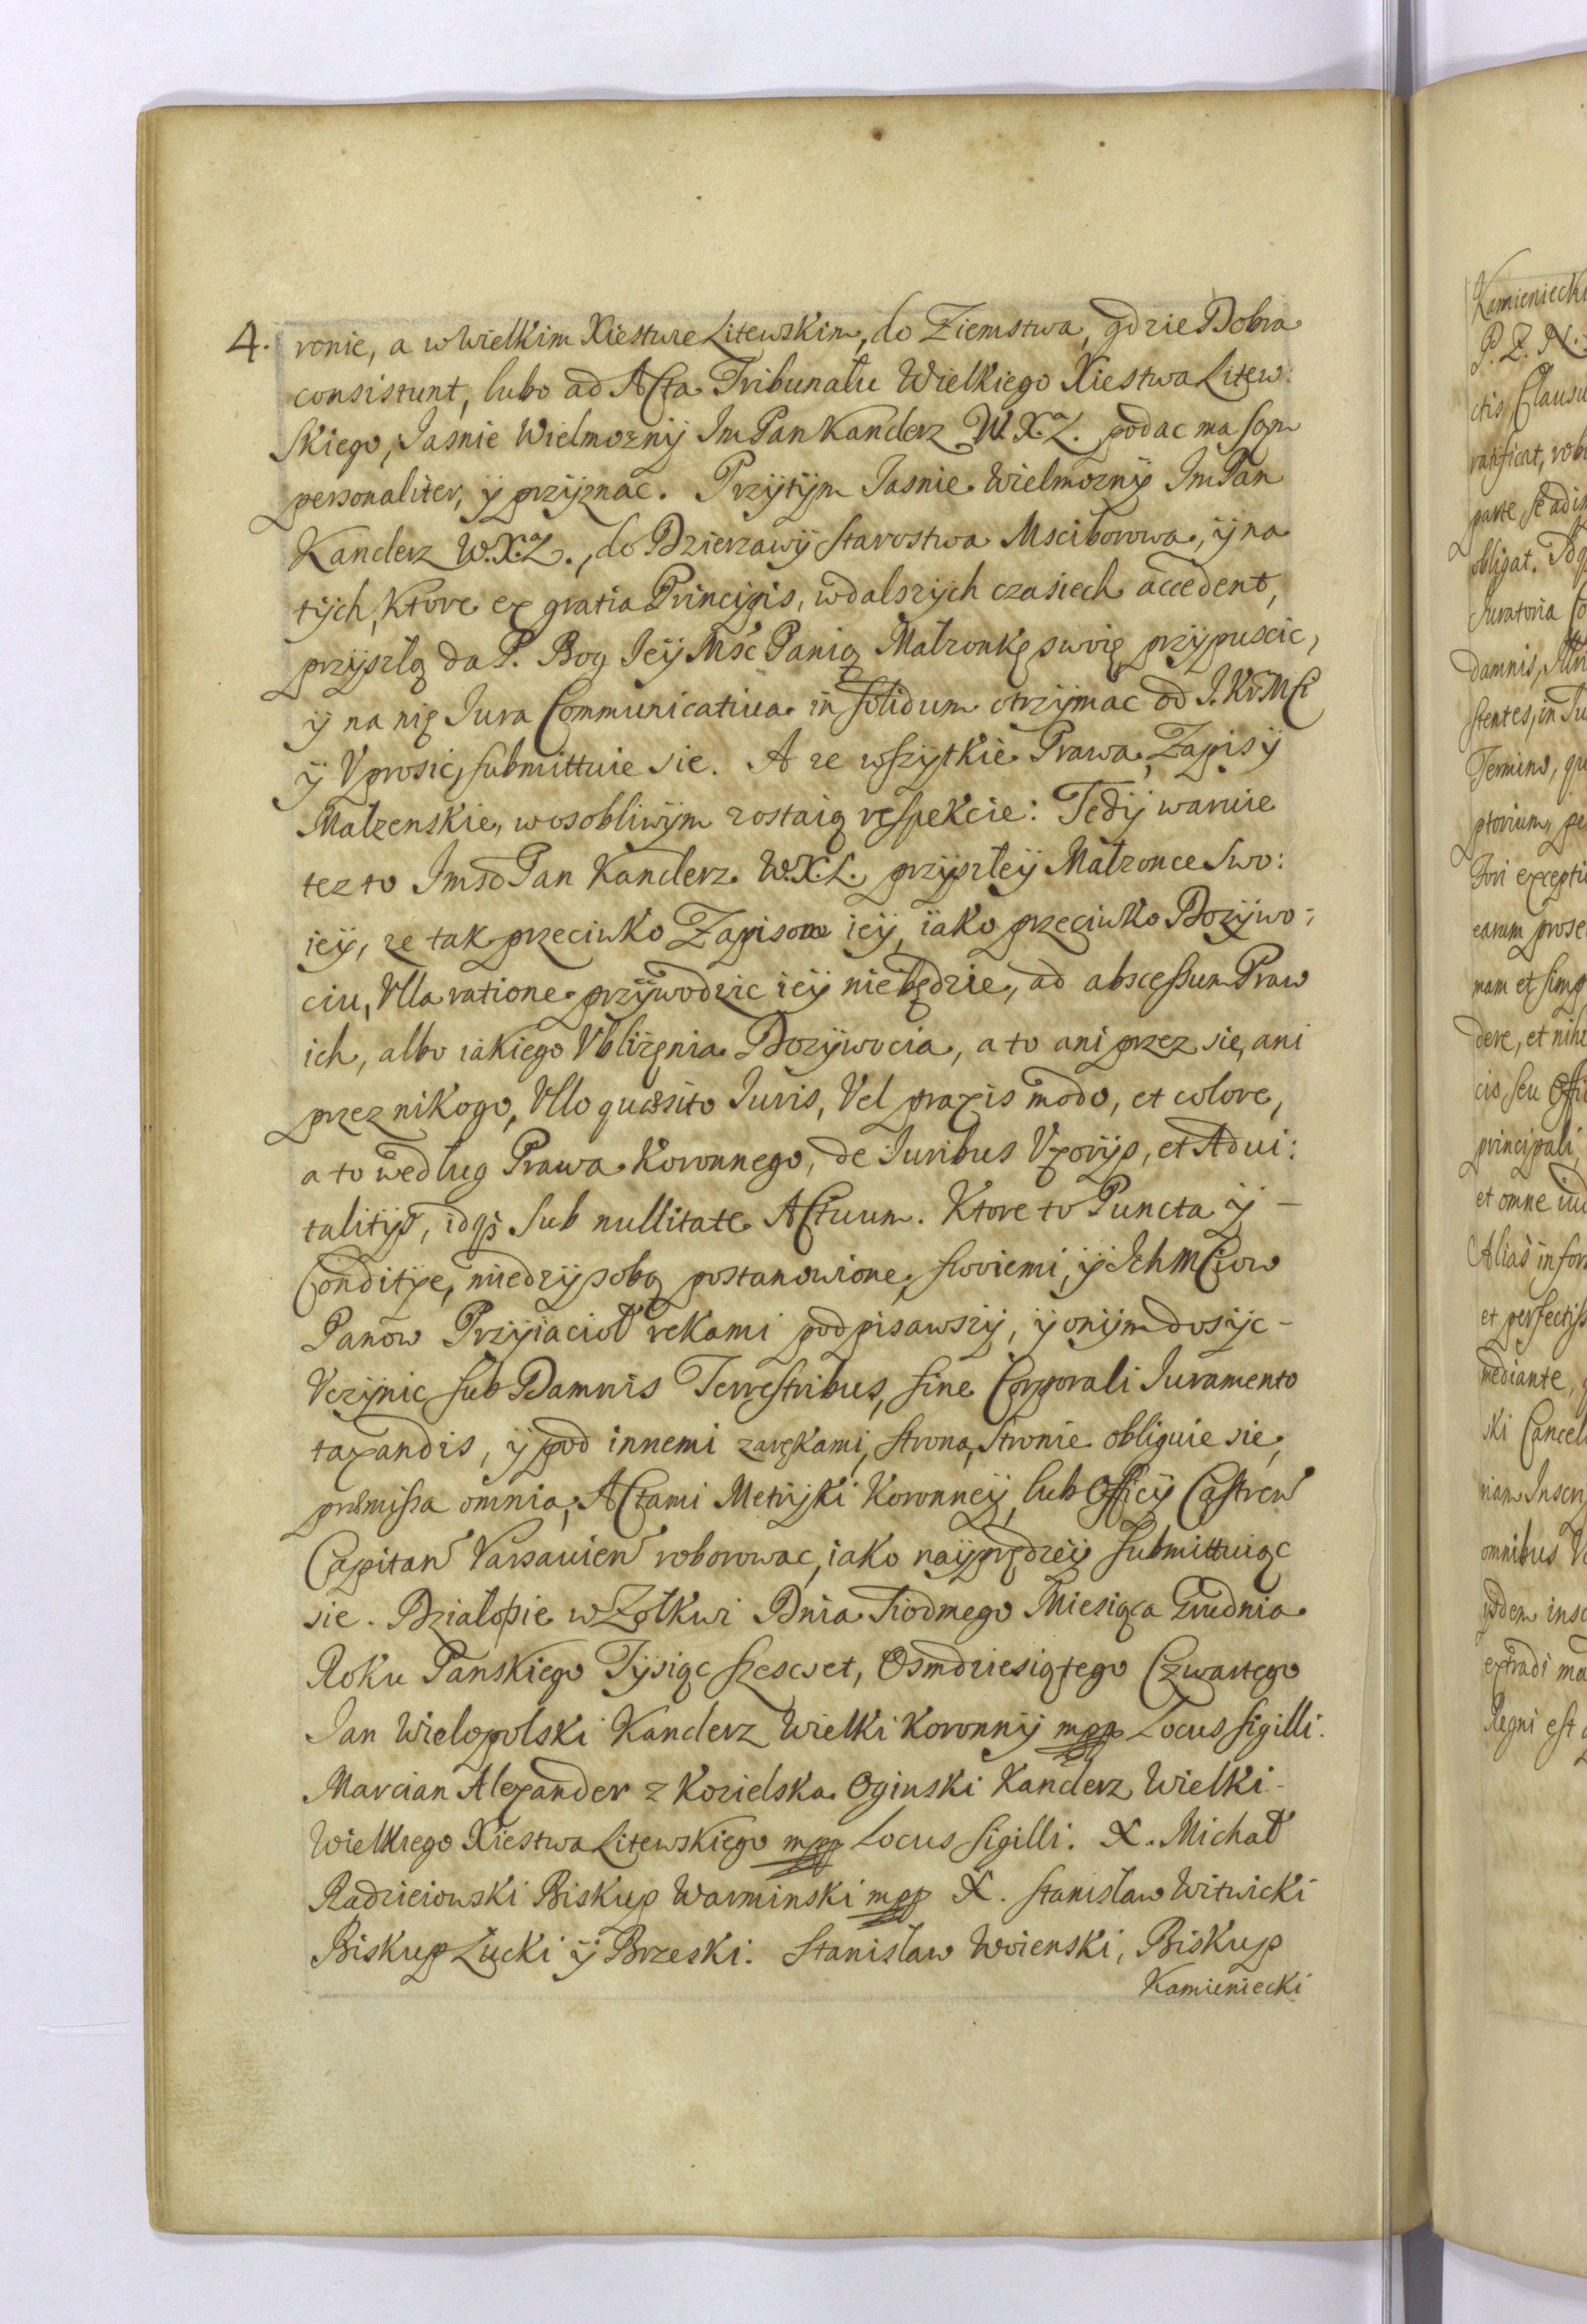 4. ronie, a w Wielkim Xiestwie Litewskim, do Ziemstwa, gdzie Dobra
consistunt, lubo ad Acta Tribunału Wielkiego Xiestwa Litew:
skiego, Jasnie Wielmoznÿ Jm Pan Kanclerz W. X. L. podac ma sąm
personaliter, ÿ przÿznac. Przÿtÿm Jasnie Wielmoznÿ Jm Pan
Kanclerz W. X. L., do Dzierzawÿ starostwa Msciborowa, ÿ na
tÿch, Ktore ex gratia Principis, w dalszÿch czasiech accedent,
przÿszłą da P. Bog Jeÿ Mśc Panią Małzonkę swoię przÿpuscic,
ÿ na nię Jura Communicatiua in solidum otrzÿmac od J. Kr. Mci
ÿ Vprosic, submittuie sie. A ze wszÿtkie Prawa, Zapisÿ
Małzenskie, w osobliwÿm zostaią respekcie: Tedÿ waruie
tez to Jmsc Pan Kanclerz W. X. L. przÿszłeÿ Małzonce Swo:
ieÿ, ze tak przeciwko Zapisom ieÿ, iako przeciwko Dozÿwo:
ciu, Vlla ratione przÿwodzic ieÿ niebędzie, ad abscessum Praw
ich, albo iakiego Vbliżęnia Dozÿwocia, a to ani przez sie, ani
przez nikogo, Vllo quæsito Juris, Vel praxis modo, et colore,
a to według Prawa Koronnego, de Juribus Vxorÿs, et Adui:
talitÿs, idqs sub nullitate Actuum. Ktore to Puncta ÿ -
Conditÿe, miedzÿ sobą postanowione, swoiemi, ÿ Ich Mciow
Panow Przÿiacioł rekami podpisawszÿ, ÿ onÿm dosÿc -
Vczÿnic sub Damnis Terrestribus, sine Corporali Juramento
taxandis, ÿ pod innemi zarękami, strona, stronie obliguie sie,
præmissa omnia, Actami Metrÿki Koronneÿ, lub Officÿ Castren
Capitan Varsauien roborowac, iako naÿprędzeÿ submittuiąc
sie. Działosie w Zołkwi Dnia Siodmego Miesiąca Grudnia
Roku Panskiego Tÿsiąc szescset, Osmdziesiątego Czwartego
Jan Wielopolski Kanclerz Wielki Koronnÿ mpp Locus sigilli.
Marcian Alexander z Kozielska Oginski Kanclerz Wielki -
Wielkiego Xiestwa Litewskiego mpp Locus sigilli. X. Michał
Radzieiowski Biskup Warminski mpp X. Stanisław Witwicki
Biskup Łucki ÿ Brzeski. Stanisław Woienski, Biskup
Kamieniecki